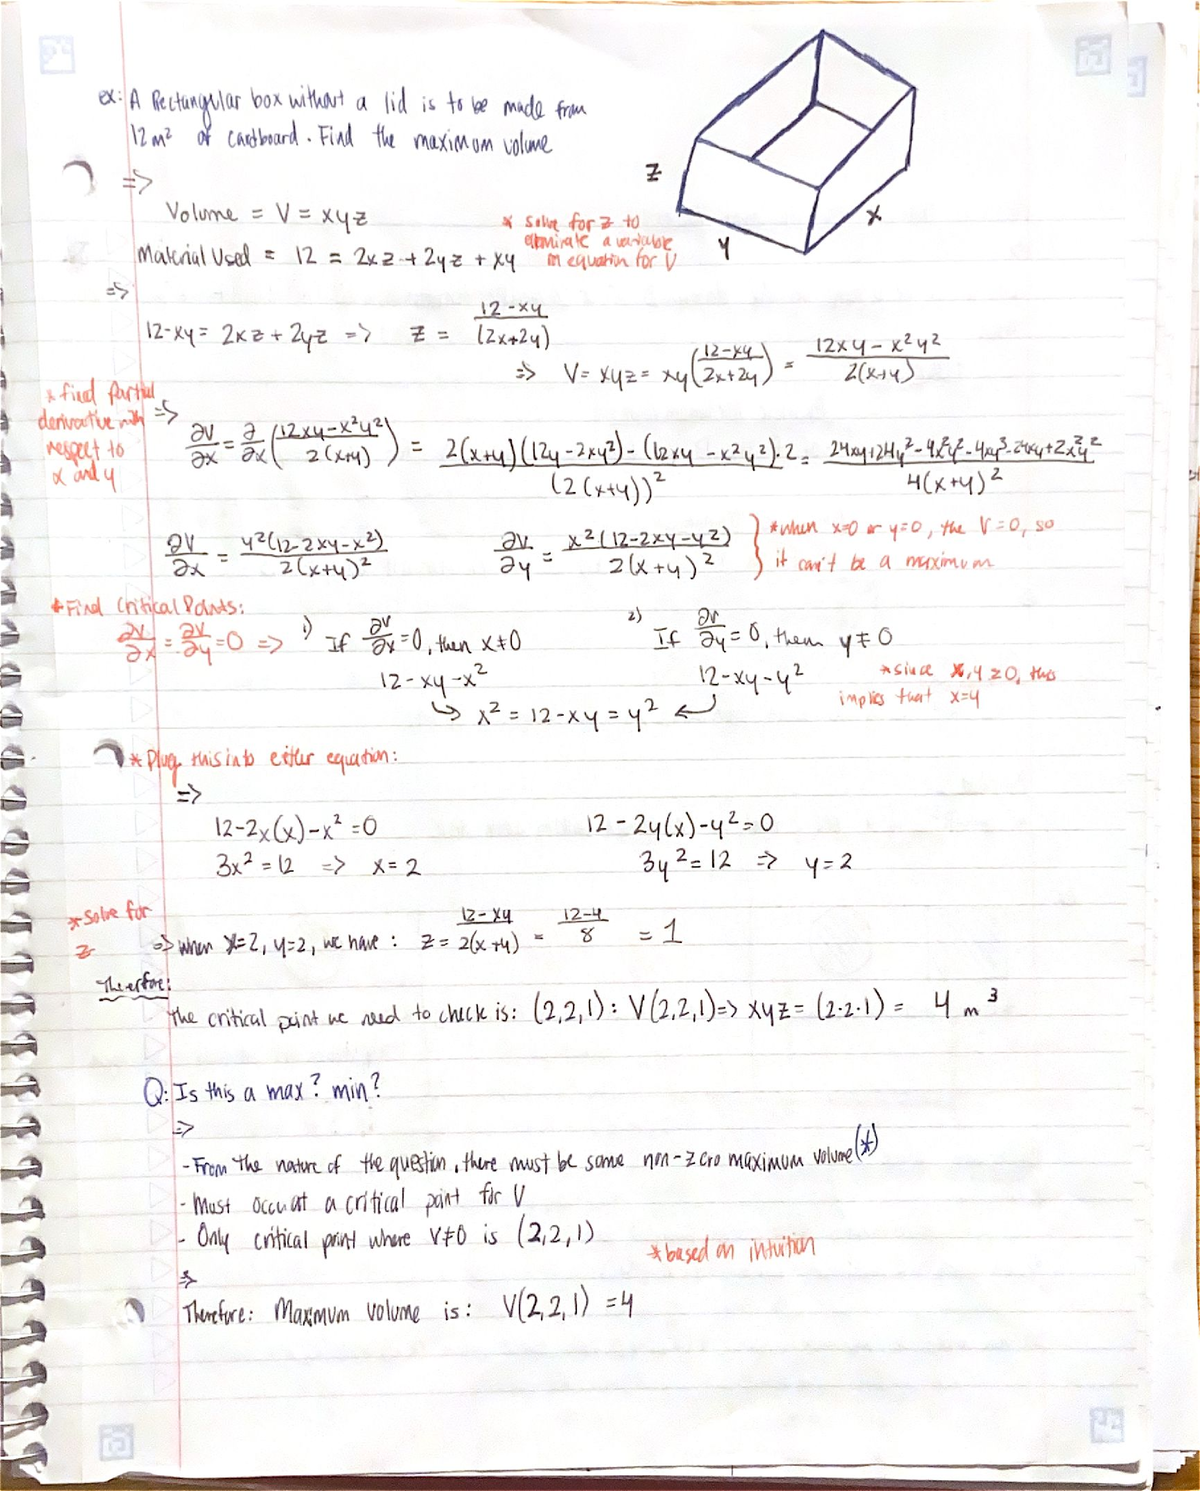 ex: A Rectangular box without a lid is to be made from
12m² of cardboard. Find the maximum volume
=>
Volume = V = xyz
Material Used = 12 = 2xz + 2yz + xy
* solve for z to
eliminate a variable
in equation for V
z
y
x
=>
12-xy = 2xz + 2yz => z = (12-xy)/(2x+2y)
=> V = xyz = xy((12-xy)/(2x+2y)) = (12xy - x²y²)/(2(x+y))
* find Partial
derivative with
respect to
x and y
=>
∂V/∂x = ∂/∂x((12xy-x²y²)/(2(x+y))) = (2(x+y)(12y-2xy²)-(12xy-x²y²)·2)/((2(x+y))²) = (24xy+24y²-4x²y²-4xy³-24xy+2x²y²)/(4(x+y)²)
∂V/∂x = (y²(12-2xy-x²))/(2(x+y)²)
∂V/∂y = (x²(12-2xy-y²))/(2(x+y)²)
*when x=0 or y=0, the V=0, so
it can't be a maximum
* Find Critical Points:
∂V/∂x = ∂V/∂y = 0 =>
1) If ∂V/∂x = 0, then x≠0
12-xy-x²
2) If ∂V/∂y = 0, then y≠0
12-xy-y²
*since x,y ≥0, this
implies that x=y
x² = 12-xy = y²
* Plug this into either equation:
=>
12-2x(x)-x² = 0
3x² = 12 => x = 2
12-2y(x)-y² = 0
3y² = 12 => y = 2
* Solve for
z
=> when x=2, y=2, we have: z = (12-xy)/(2(x+y)) = (12-4)/8 = 1
Therefore:
the critical point we need to check is: (2,2,1): V(2,2,1)=> xyz = (2·2·1) = 4 m³
Q: Is this a max? min?
=>
- From the nature of the question, there must be some non-zero maximum volume (*)
- Must occur at a critical point for V
- Only critical point where V≠0 is (2,2,1)
* based on intuition
=>
Therefore: Maximum volume is: V(2,2,1) = 4